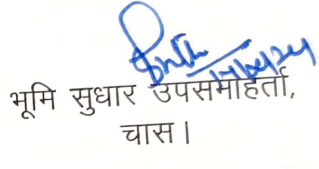 भूमि सुधार उपसमाहर्ता,
चास।